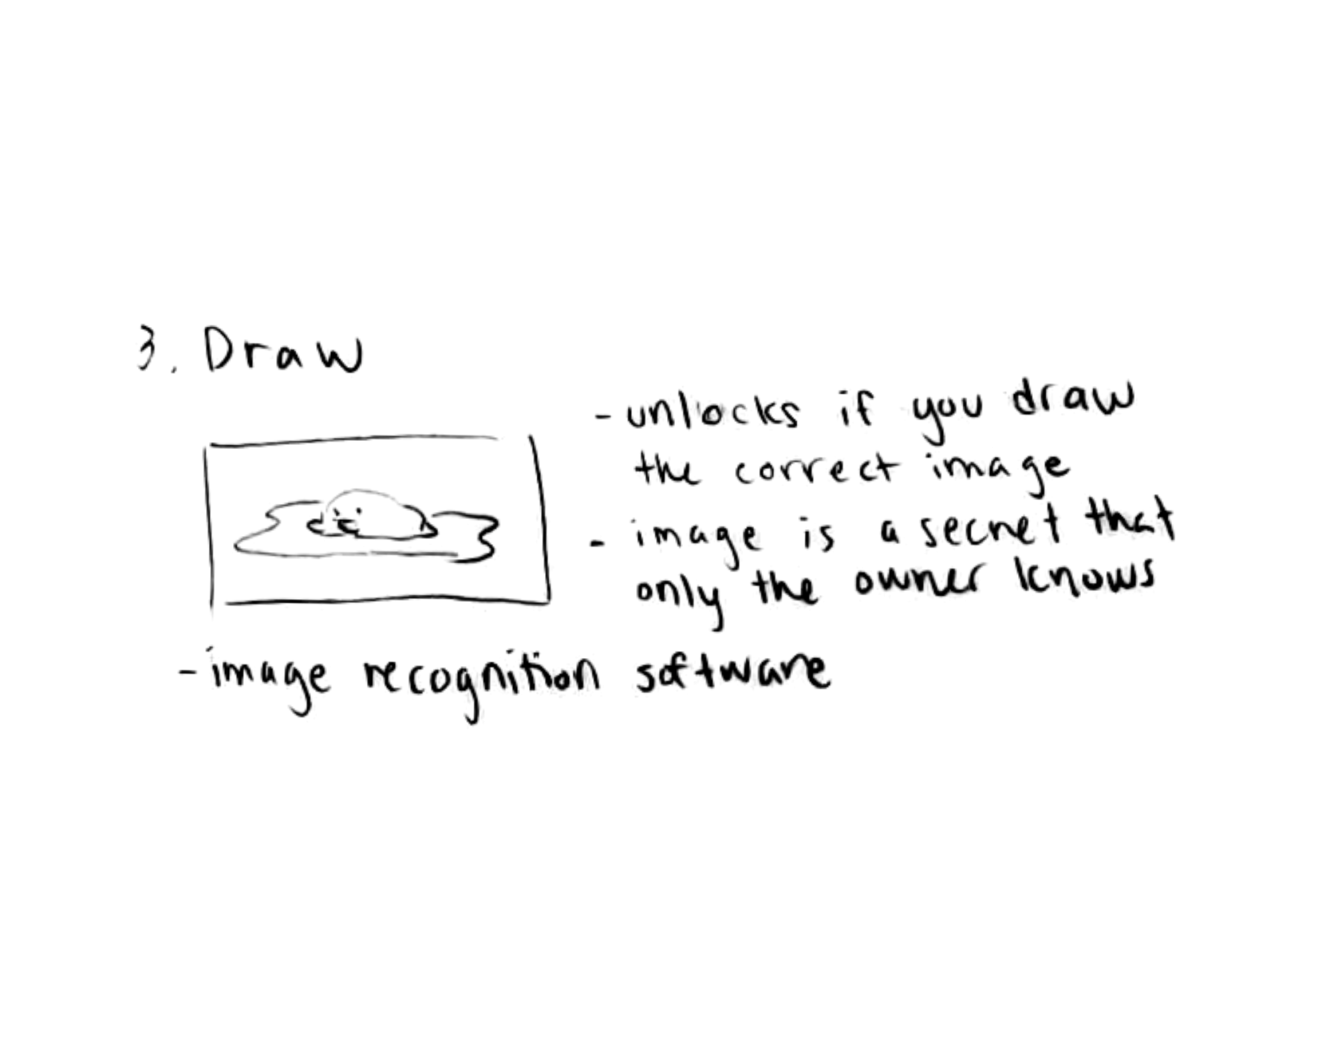 3. Draw
- unlocks if you draw
the correct image
- image is a secret that
only the owner knows
- image recognition software